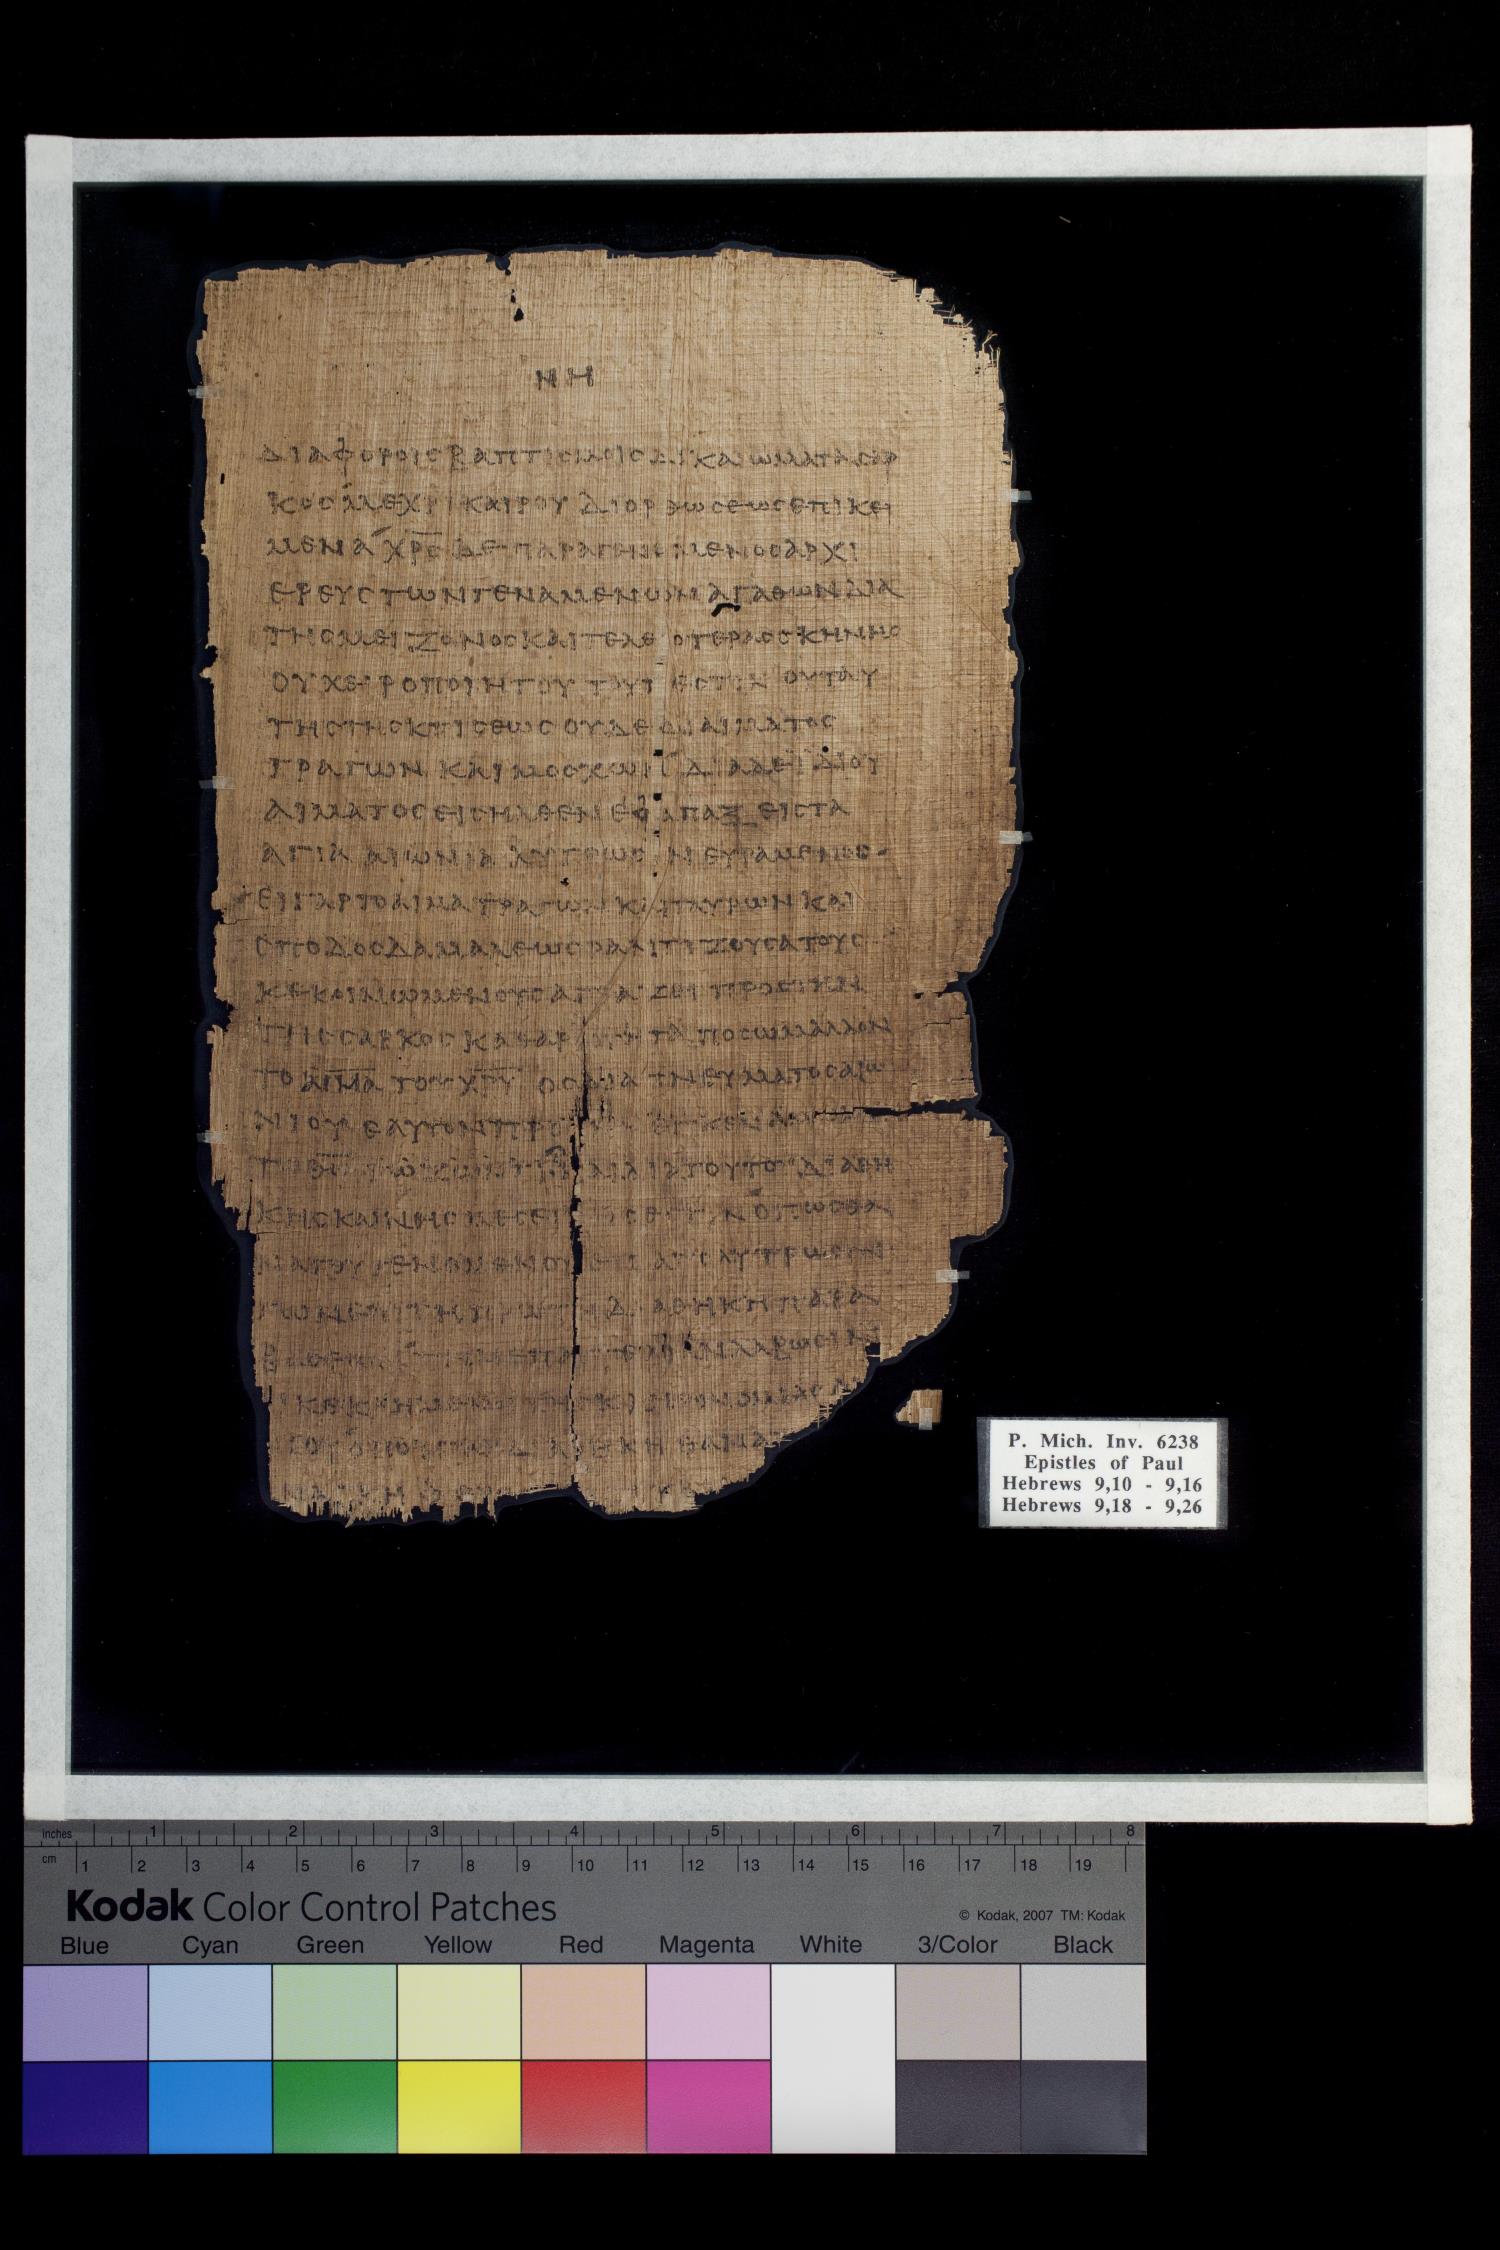 ΝΗ
ΔΙΑΦΟΡΟΙΣ ΒΑΠΤΙΣΜΟΙΣ ΔΙΚΑΙΩΜΑΤΑ ΣΑΡ
ΚΟΣ ΜΕΧΡΙ ΚΑΙΡΟΥ ΔΙΟΡΘΩΣΕΩΣ ΕΠΙΚΕΙ
ΜΕΝΑ ΧΡΣ ΔΕ ΠΑΡΑΓΕΝΟΜΕΝΟΣ ΑΡΧΙ
ΕΡΕΥΣ ΤΩΝ ΓΕΝΑΜΕΝΩΝ ΑΓΑΘΩΝ ΔΙΑ
ΤΗΣ ΜΕΙΖΟΝΟΣ ΚΑΙ ΤΕΛΕΟΤΕΡΑΣ ΣΚΗΝΗΣ
ΟΥ ΧΕΙΡΟΠΟΙΗΤΟΥ ΤΟΥΤ ΕΣΤΙΝ ΟΥ ΤΑΥ
ΤΗΣ ΤΗΣ ΚΤΙΣΕΩΣ ΟΥΔΕ ΔΙ ΑΙΜΑΤΟΣ
ΤΡΑΓΩΝ ΚΑΙ ΜΟΣΧΩΝ ΔΙΑ ΔΕ ΙΔΙΟΥ
ΑΙΜΑΤΟΣ ΕΙΣΗΛΘΕΝ ΕΦΑΠΑΞ ΕΙΣ ΤΑ
ΑΓΙΑ ΑΙΩΝΙΑ ΛΥΤΡΩΣΙΝ ΕΥΡΑΜΕΝΟΣ
ΕΙ ΓΑΡ ΤΟ ΑΙΜΑ ΤΡΑΓΩΝ ΚΑΙ ΤΑΥΡΩΝ ΚΑΙ
ΣΠΟΔΟΣ ΔΑΜΑΛΕΩΣ ΡΑΝΤΙΖΟΥΣΑ ΤΟΥΣ
ΚΕΚΟΙΝΩΜΕΝΟΥΣ ΑΓΙΑΖΕΙ ΠΡΟΣ ΤΗΝ
ΤΗΣ ΣΑΡΚΟΣ ΚΑΘΑΡΟΤΗΤΑ ΠΟΣΩ ΜΑΛΛΟΝ
ΤΟ ΑΙΜΑ ΤΟΥ ΧΡΥ ΟΣ ΔΙΑ ΠΝΕΥΜΑΤΟΣ ΑΙΩ
ΝΙΟΥ ΕΑΥΤΟΝ
ΔΙΑ ΤΟΥΤΟ ΔΙΑΘΗ
ΚΗΣ ΚΑΙΝΗΣ ΜΕΣΕΙΤΗΣ ΕΣΤΙΝ ΟΠΩΣ ΘΑ
ΝΑΤΟΥ ΓΕΝΟΜΕΝΟΥ ΕΙΣ ΑΠΟΛΥΤΡΩΣΙΝ
ΤΩΝ ΕΠΙ ΤΗ ΠΡΩΤΗ ΔΙΑΘΗΚΗ ΠΑΡΑ
P. Mich. Inv. 6238
Epistles of Paul
Hebrews 9,10 - 9,16
Hebrews 9,18 - 9,26
inches 1 2 3 4 5 6 7 8
cm 1 2 3 4 5 6 7 8 9 10 11 12 13 14 15 16 17 18 19
Kodak Color Control Patches
© Kodak, 2007 TM: Kodak
Blue Cyan Green Yellow Red Magenta White 3/Color Black